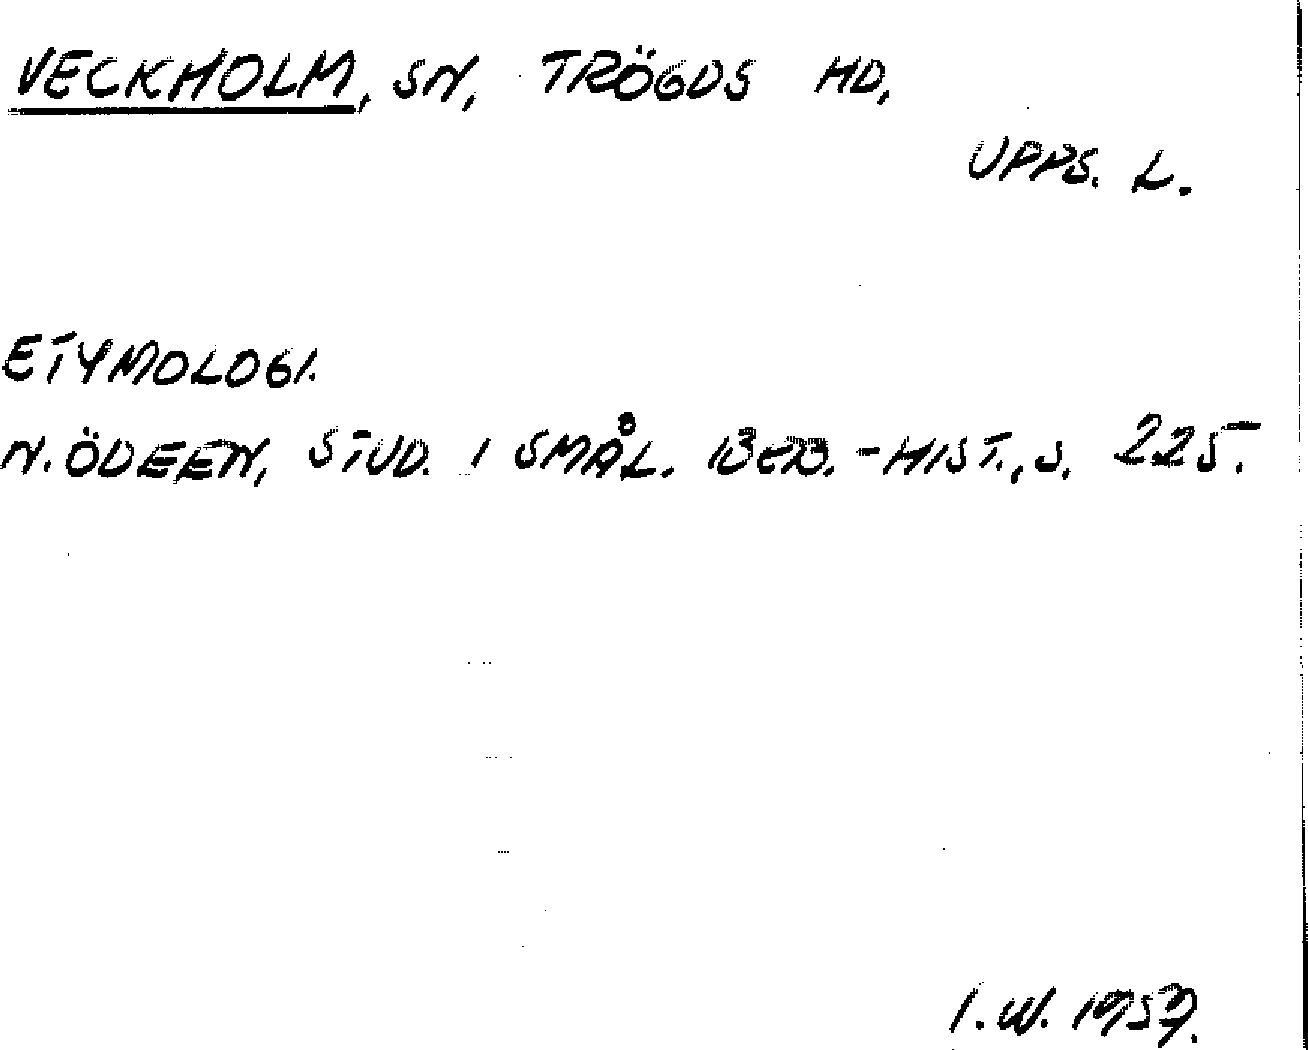 VECKHOLM, SN, TRÖGDS HD,
UPPS. L.
ETYMOLOGI.
N. ÖDEEN, STUD. I SMÅL. BEB.-HIST., S. 225.
I.W. 1957.